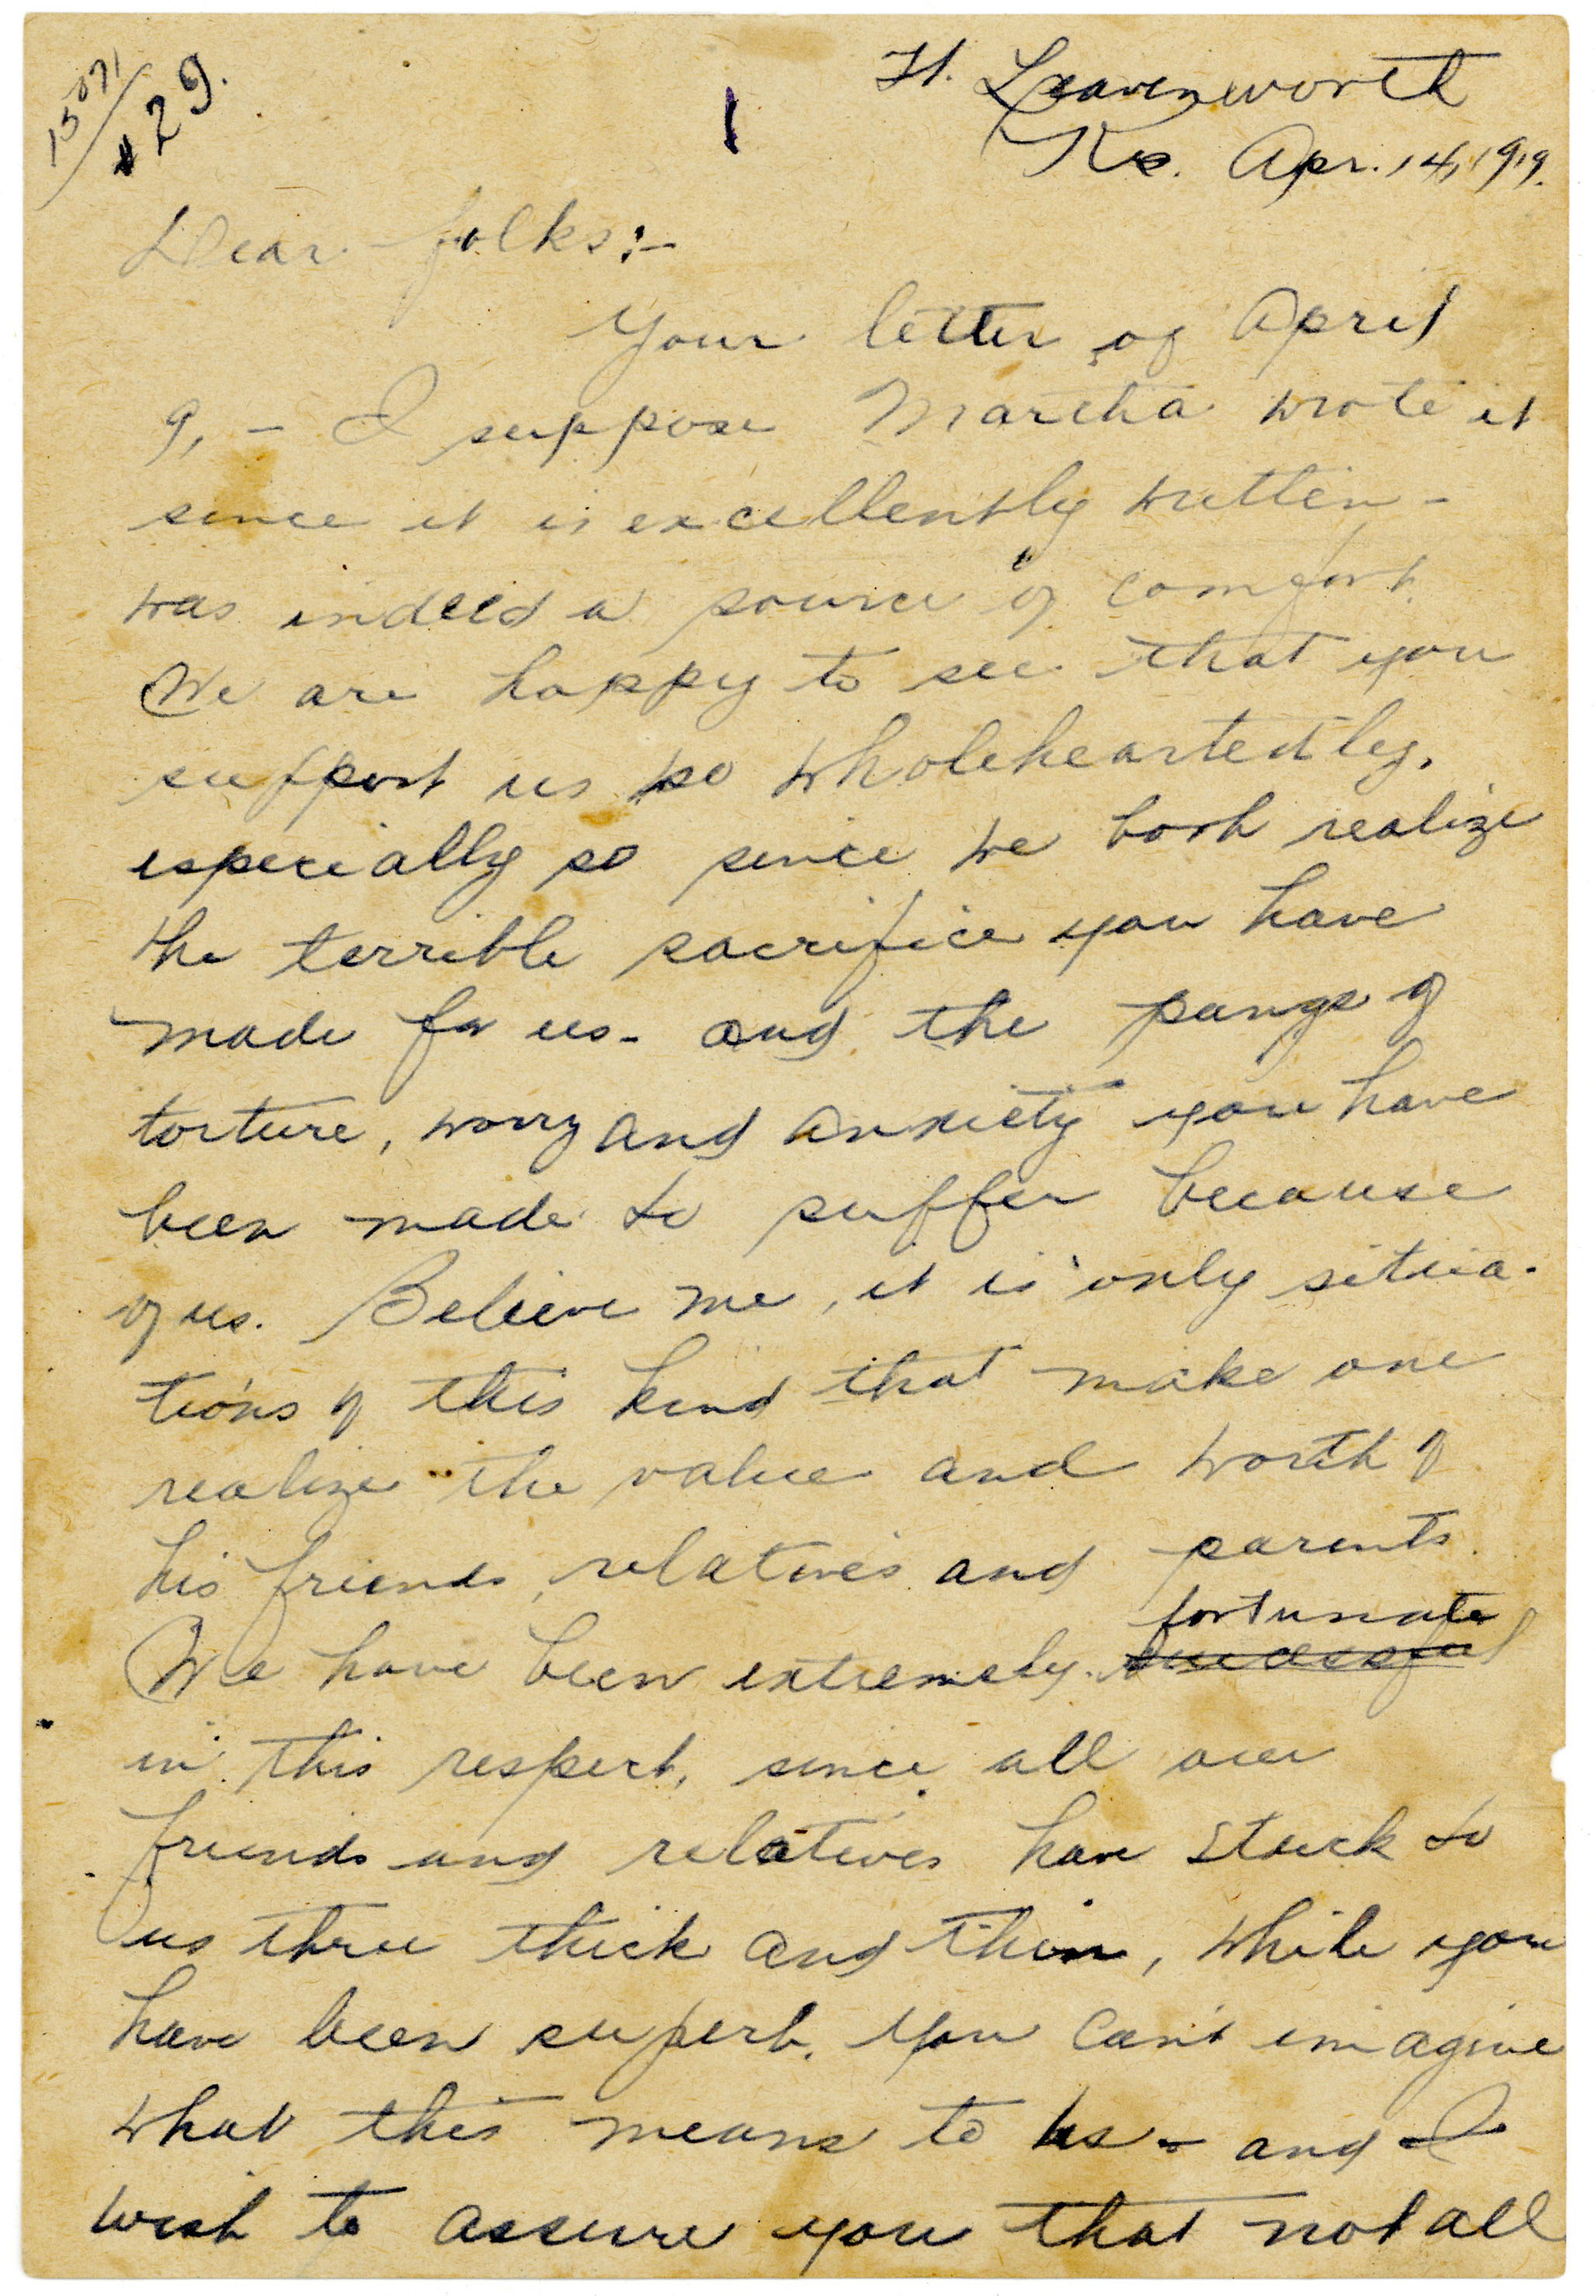 15071
#29.
1
Ft. Leavenworth
Ks. Apr. 14, 1919.
Dear folks:-
Your letter of April
9, - I suppose Martha wrote it
since it is excellently written -
was indeed a source of comfort.
We are happy to see that you
support us so wholeheartedly,
especially so since we both realize
the terrible sacrifice you have
made for us - and the pangs of
torture, worry and anxiety you have
been made to suffer because
of us. Believe me, it is only situa-
tions of this kind that make one
realize the value and worth of
his friends, relatives and parents.
fortunate
We have been extremely successful
in this respect, since all our
friends and relatives have stuck to
us thru thick and thin, while you
have been superb. You can't imagine
what this means to us - and I
wish to assure you that not all